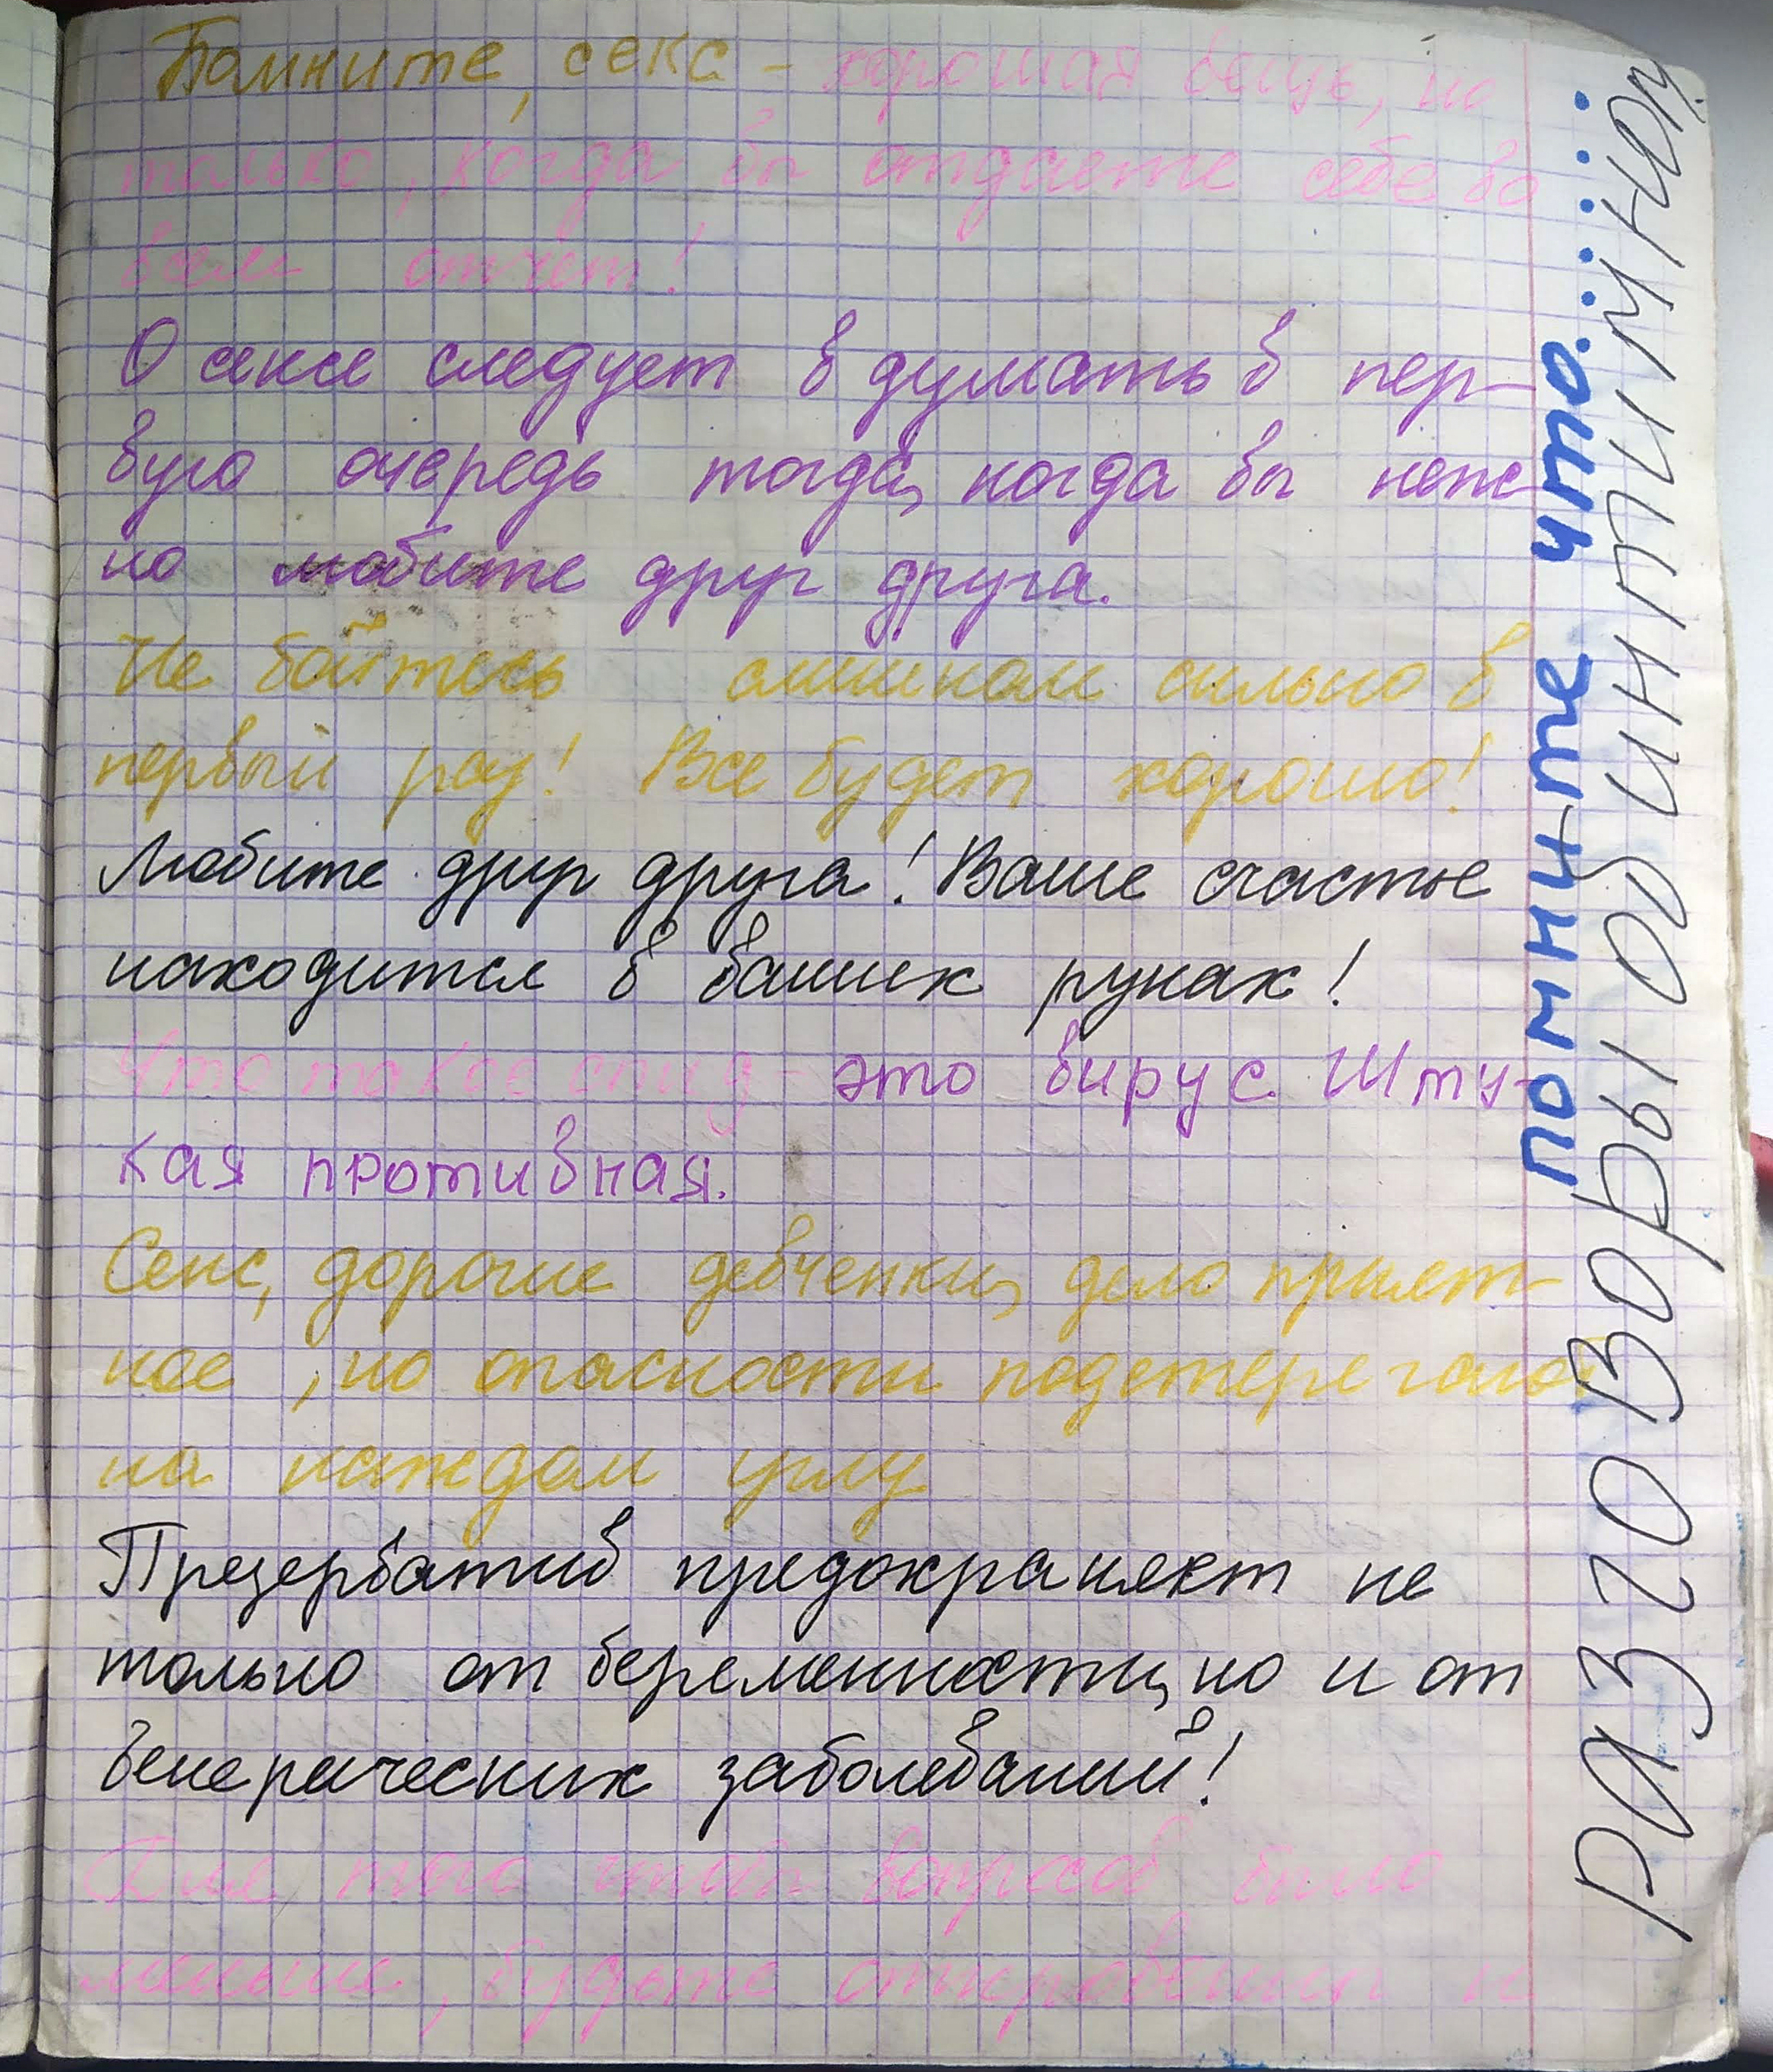 Помните, секс - хорошая вещь, но
только, когда вы отдаете себе во
всем отчёт!
О сексе следует вдумать в пер-
вую очередь тогда, когда вы неж
но любите друг друга.
Не бойтесь слишком сильно в
первый раз! Все будет хорошо!
Любите друг друга! Ваше счастье
находится в ваших руках!
Что такое спид - это вирус. Шту-
кая противная.
Секс, дорогие девченки, дело прият-
ное, но опасности подстерегают
на каждом углу
Презерватив предохраняет не
только от беременности, но и от
венерических заболеваний!
Для того чтобы вопросов было
меньше, будьте откровенны и
помните что:.....
Разговоры об интимном